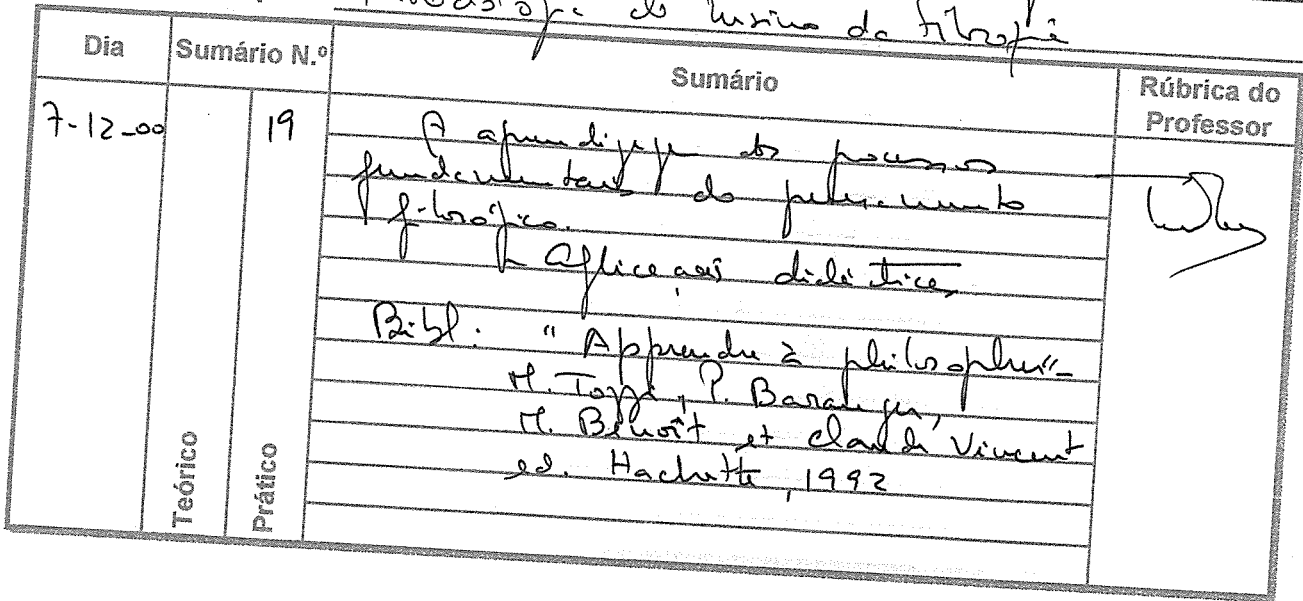 Metodologia do Ensino da Filosofia
Dia Sumário N.º Sumário Rúbrica do Professor
7-12-00 19 A aprendizagem dos processos
fundamentais do pensamento
filosófico.
Aplicação didáctica
Bibl: "Apprendre à philosopher"-
M. Tozzi, P. Baranger,
M. Benoît et Claude Vincent
ed. Hachette, 1992
Teórico
Prático